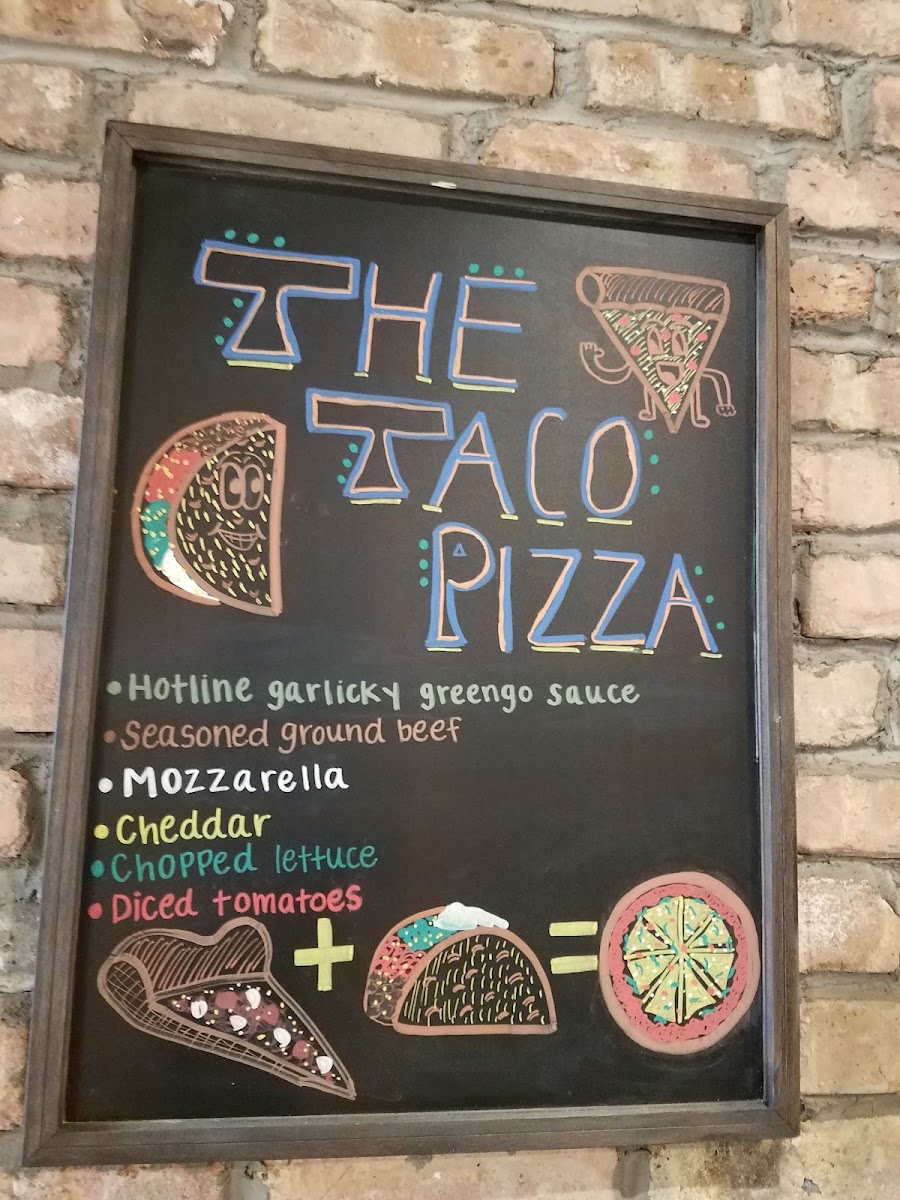 THE
TACO
PIZZA
• Hotline garlicky greengo sauce
• Seasoned ground beef
• Mozzarella
• Cheddar
• Chopped lettuce
• Diced tomatoes
+ =